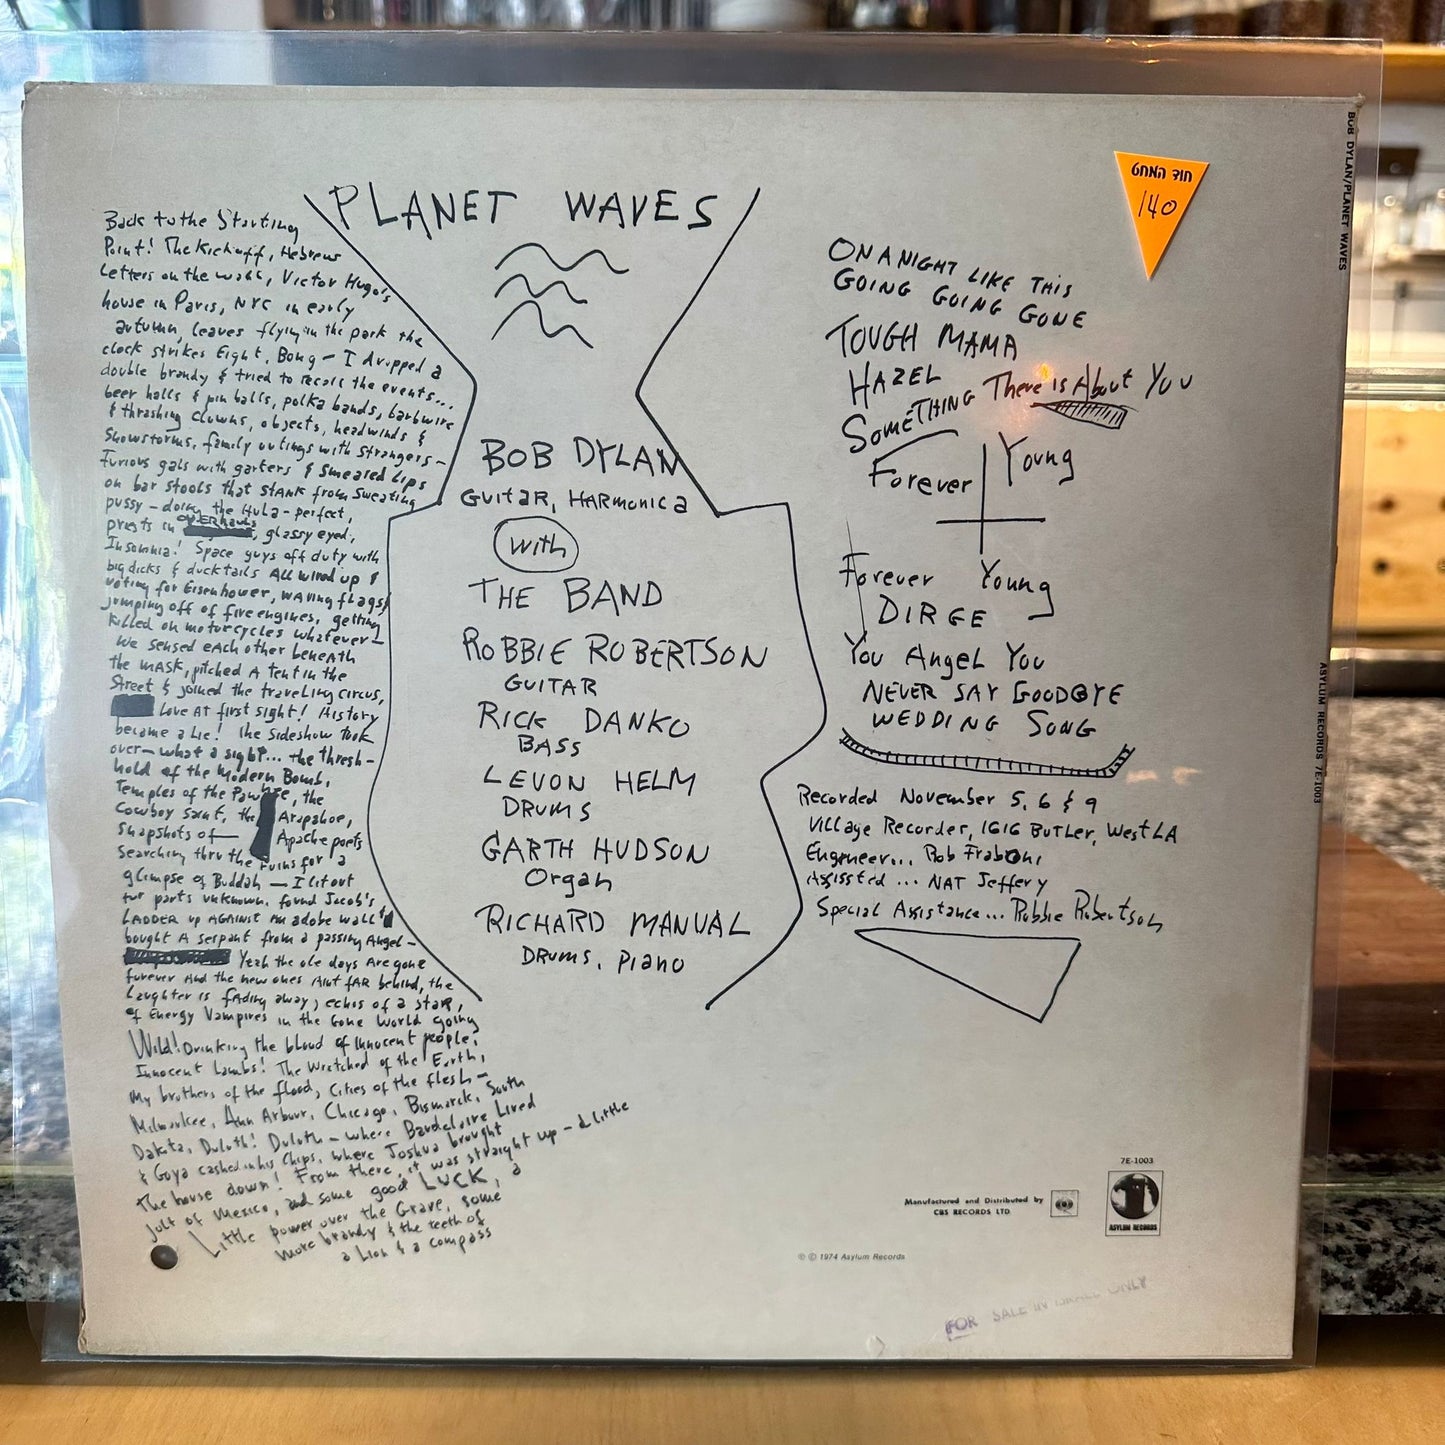 PLANET WAVES
Back to the Starting
Point! The Kickoff, Hebrew
Letters on the wall, Victor Hugo's
house in Paris, NYC in early
autumn, leaves flying in the park the
clock strikes Eight, Bong – I dropped a
double brandy & tried to recall the events...
beer halls & pin balls, polka bands, barbwire
& thrashing clowns, objects, headwinds &
Snowstorms, family outings with strangers –
Furious gals with garters & smeared Lips
on bar stools that stank from sweating
pussy – doing the Hula – perfect,
priests in OVERhauls, glassy eyed,
Insomnia! Space guys off duty with
big dicks & ducktails All wired up &
voting for Eisenhower, waving flags
jumping off of fire engines, getting
killed on motorcycles whatever –
We sensed each other beneath
the mask, pitched A tent in the
Street & joined the traveling circus,
Love At first sight! History
became a Lie! The sideshow took
over – what a sight... the thresh-
hold of the Modern Bomb,
Temples of the Pawnee, the
Cowboy Saint, the Arapahoe,
Snapshots of Apache poets
Searching thru the ruins for a
glimpse of Buddah – I lit out
for parts unknown, found Jacob's
LADDER up AGAINST An adobe wall &
bought A serpant from a passing Angel –
Yeah the ole days Are gone
forever And the new ones Aint fAR behind, the
Laughter is fAding away, echos of a staR,
of Energy Vampires in the Gone World going
Wild! Drinking the blood of innocent people,
Innocent Lambs! The Wretched of the Earth,
My brothers of the flood, Cities of the flesh –
Milwaukee, Ann Arbour, Chicago, Bismarck, South
Dakota, Duluth! Duluth – where Baudelaire Lived
& Goya cashed in his Chips, where Joshua brought
The house down! From there, it was straight up – a little
jolt of Mexico, and some good LUCK, a
Little power over the Grave, some
more brandy & the teeth of
a Lion & a compass
BOB DYLAN
GUITAR, HARMONICA
with
THE BAND
ROBBIE ROBERTSON
GUITAR
RICK DANKO
BASS
LEVON HELM
DRUMS
GARTH HUDSON
Organ
RICHARD MANUAL
DRUMS, PIANO
חוד המחט
140
ON A NIGHT LIKE THIS
GOING GOING GONE
TOUGH MAMA
HAZEL
SOMETHING There is About You
Forever Young
Forever Young
DIRGE
You Angel You
NEVER SAY GOODBYE
WEDDING SONG
Recorded November 5, 6 & 9
Village Recorder, 1616 BUTLER, West LA
Engineer... Rob Fraboni
Assissted ... NAT Jeffery
Special Assistance... Robbie Robertson
7E-1003
Manufactured and Distributed by
CBS RECORDS LTD.
ASYLUM RECORDS
℗ © 1974 Asylum Records
FOR SALE IN ISRAEL ONLY
BOB DYLAN/PLANET WAVES
ASYLUM RECORDS 7E-1003